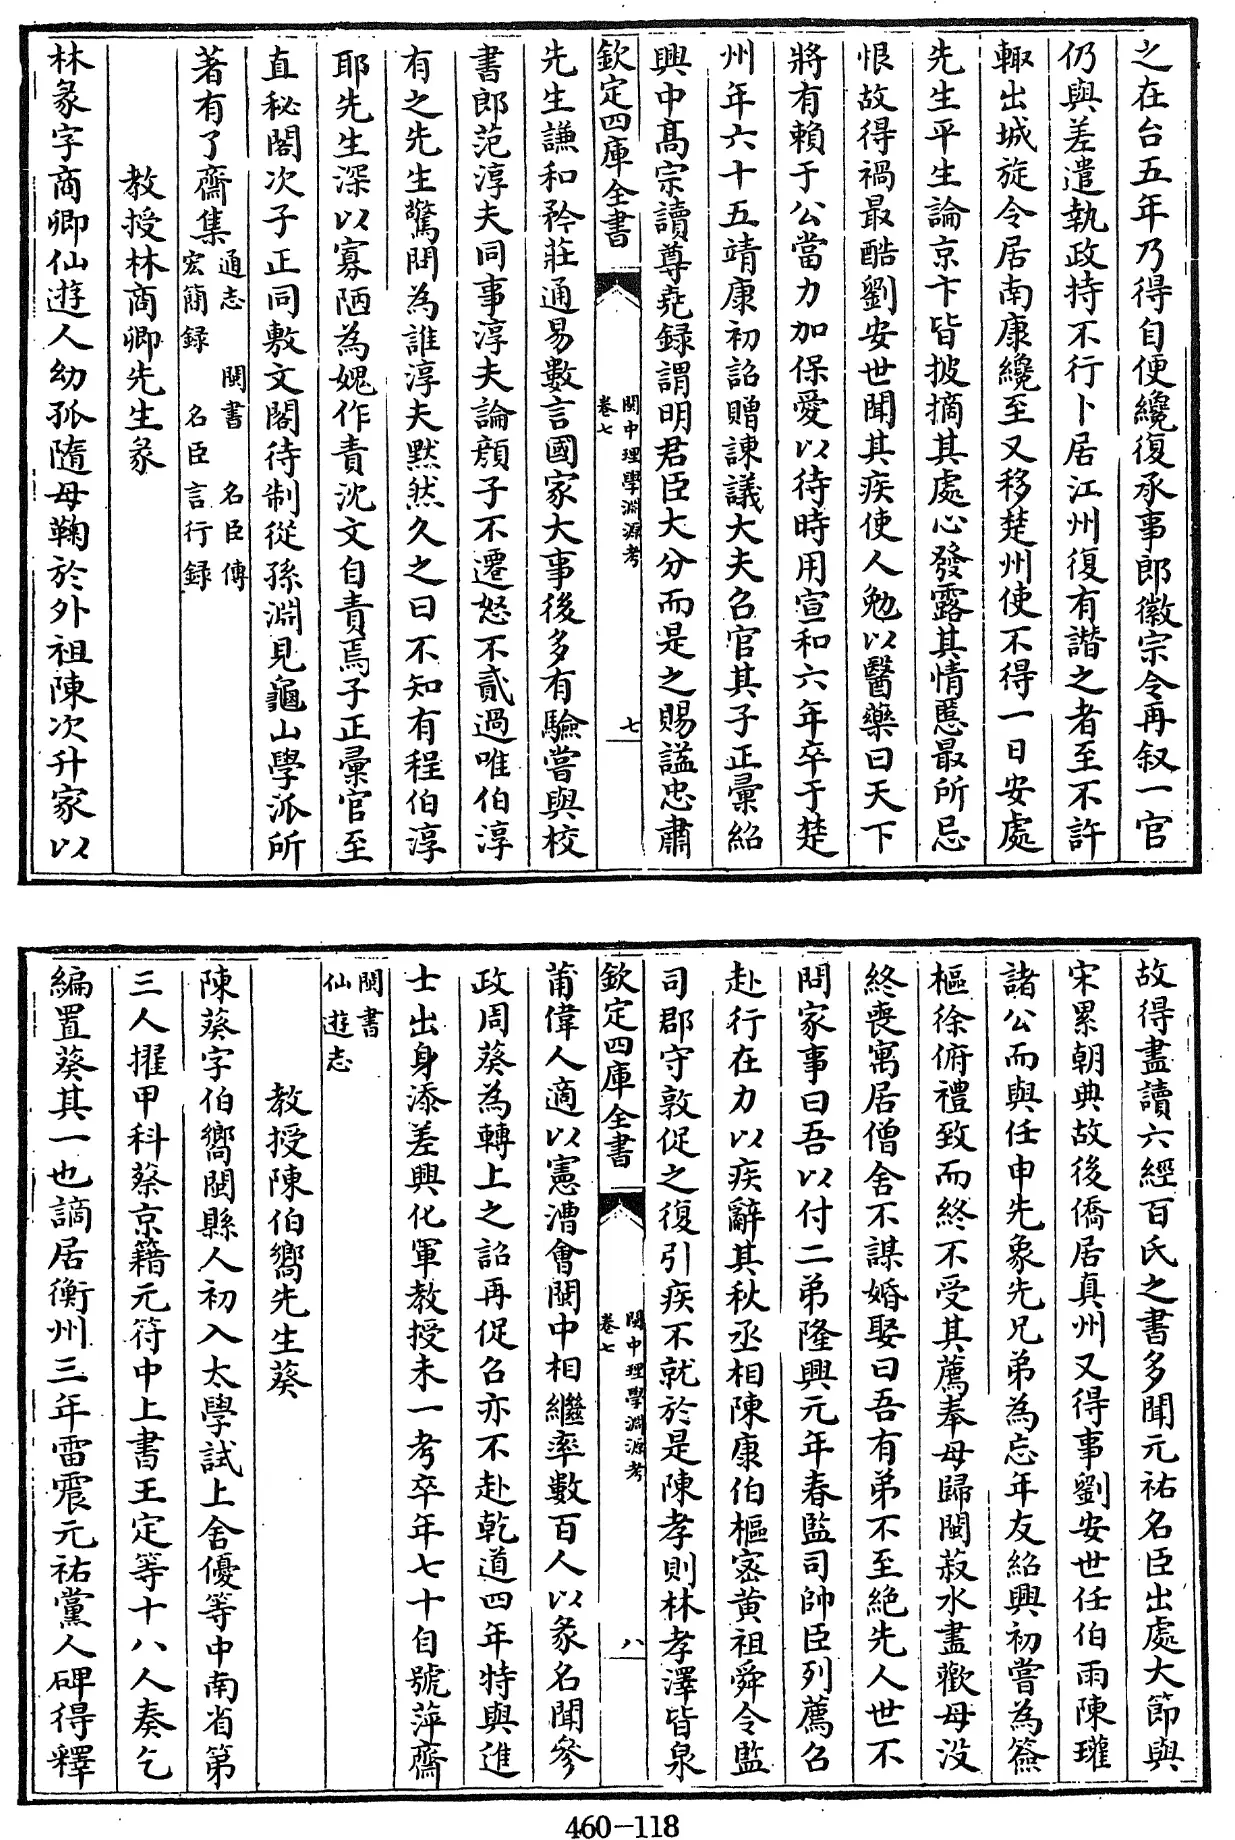 之在台五年乃得自便纔復承事郎徽宗令再叙一官
仍與差遣執政持不行卜居江州復有譖之者至不許
輙出城旋令居南康纔至又移楚州使不得一日安處
先生平生論京卞皆披摘其處心發露其情慝最所忌
恨故得禍最酷劉安世聞其疾使人勉以醫藥曰天下
將有賴于公當力加保愛以待時用宣和六年卒于楚
州年六十五靖康初詔贈諫議大夫召官其子正彚紹
興中髙宗讀尊堯録謂明君臣大分而是之賜謚忠肅
欽定四庫全書
閩中理學淵源考
卷七
七
先生謙和矜莊通易數言國家大事後多有驗嘗與校
書郎范淳夫同事淳夫論顔子不遷怒不貳過唯伯淳
有之先生驚問為誰淳夫黙然久之曰不知有程伯淳
耶先生深以寡陋為媿作責沈文自責焉子正彚官至
直秘閣次子正同敷文閣待制從孫淵見龜山學派所
著有了齋集
通志 閩書 名臣傳
宏簡録 名臣言行録
教授林商卿先生彖
林彖字商卿仙遊人幼孤隨母鞠於外祖陳次升家以
故得盡讀六經百氏之書多聞元祐名臣出處大節與
宋累朝典故後僑居真州又得事劉安世任伯雨陳瓘
諸公而與任申先象先兄弟為忘年友紹興初嘗為簽
樞徐俯禮致而終不受其薦奉母歸閩菽水盡歡母没
終喪寓居僧舍不謀婚娶曰吾有弟不至絶先人世不
問家事曰吾以付二弟隆興元年春監司帥臣列薦召
赴行在力以疾辭其秋丞相陳康伯樞宻黄祖舜令監
司郡守敦促之復引疾不就於是陳孝則林孝澤皆泉
欽定四庫全書
閩中理學淵源考
卷七
八
莆偉人適以憲漕會閩中相繼率數百人以彖名聞參
政周葵為轉上之詔再促召亦不赴乾道四年特與進
士出身添差興化軍教授未一考卒年七十自號萍齋
閩書
仙遊志
教授陳伯嚮先生葵
陳葵字伯嚮閩縣人初入太學試上舍優等中南省第
三人擢甲科蔡京籍元符中上書王定等十八人奏乞
編置葵其一也謫居衡州三年雷震元祐黨人碑得釋
460-118